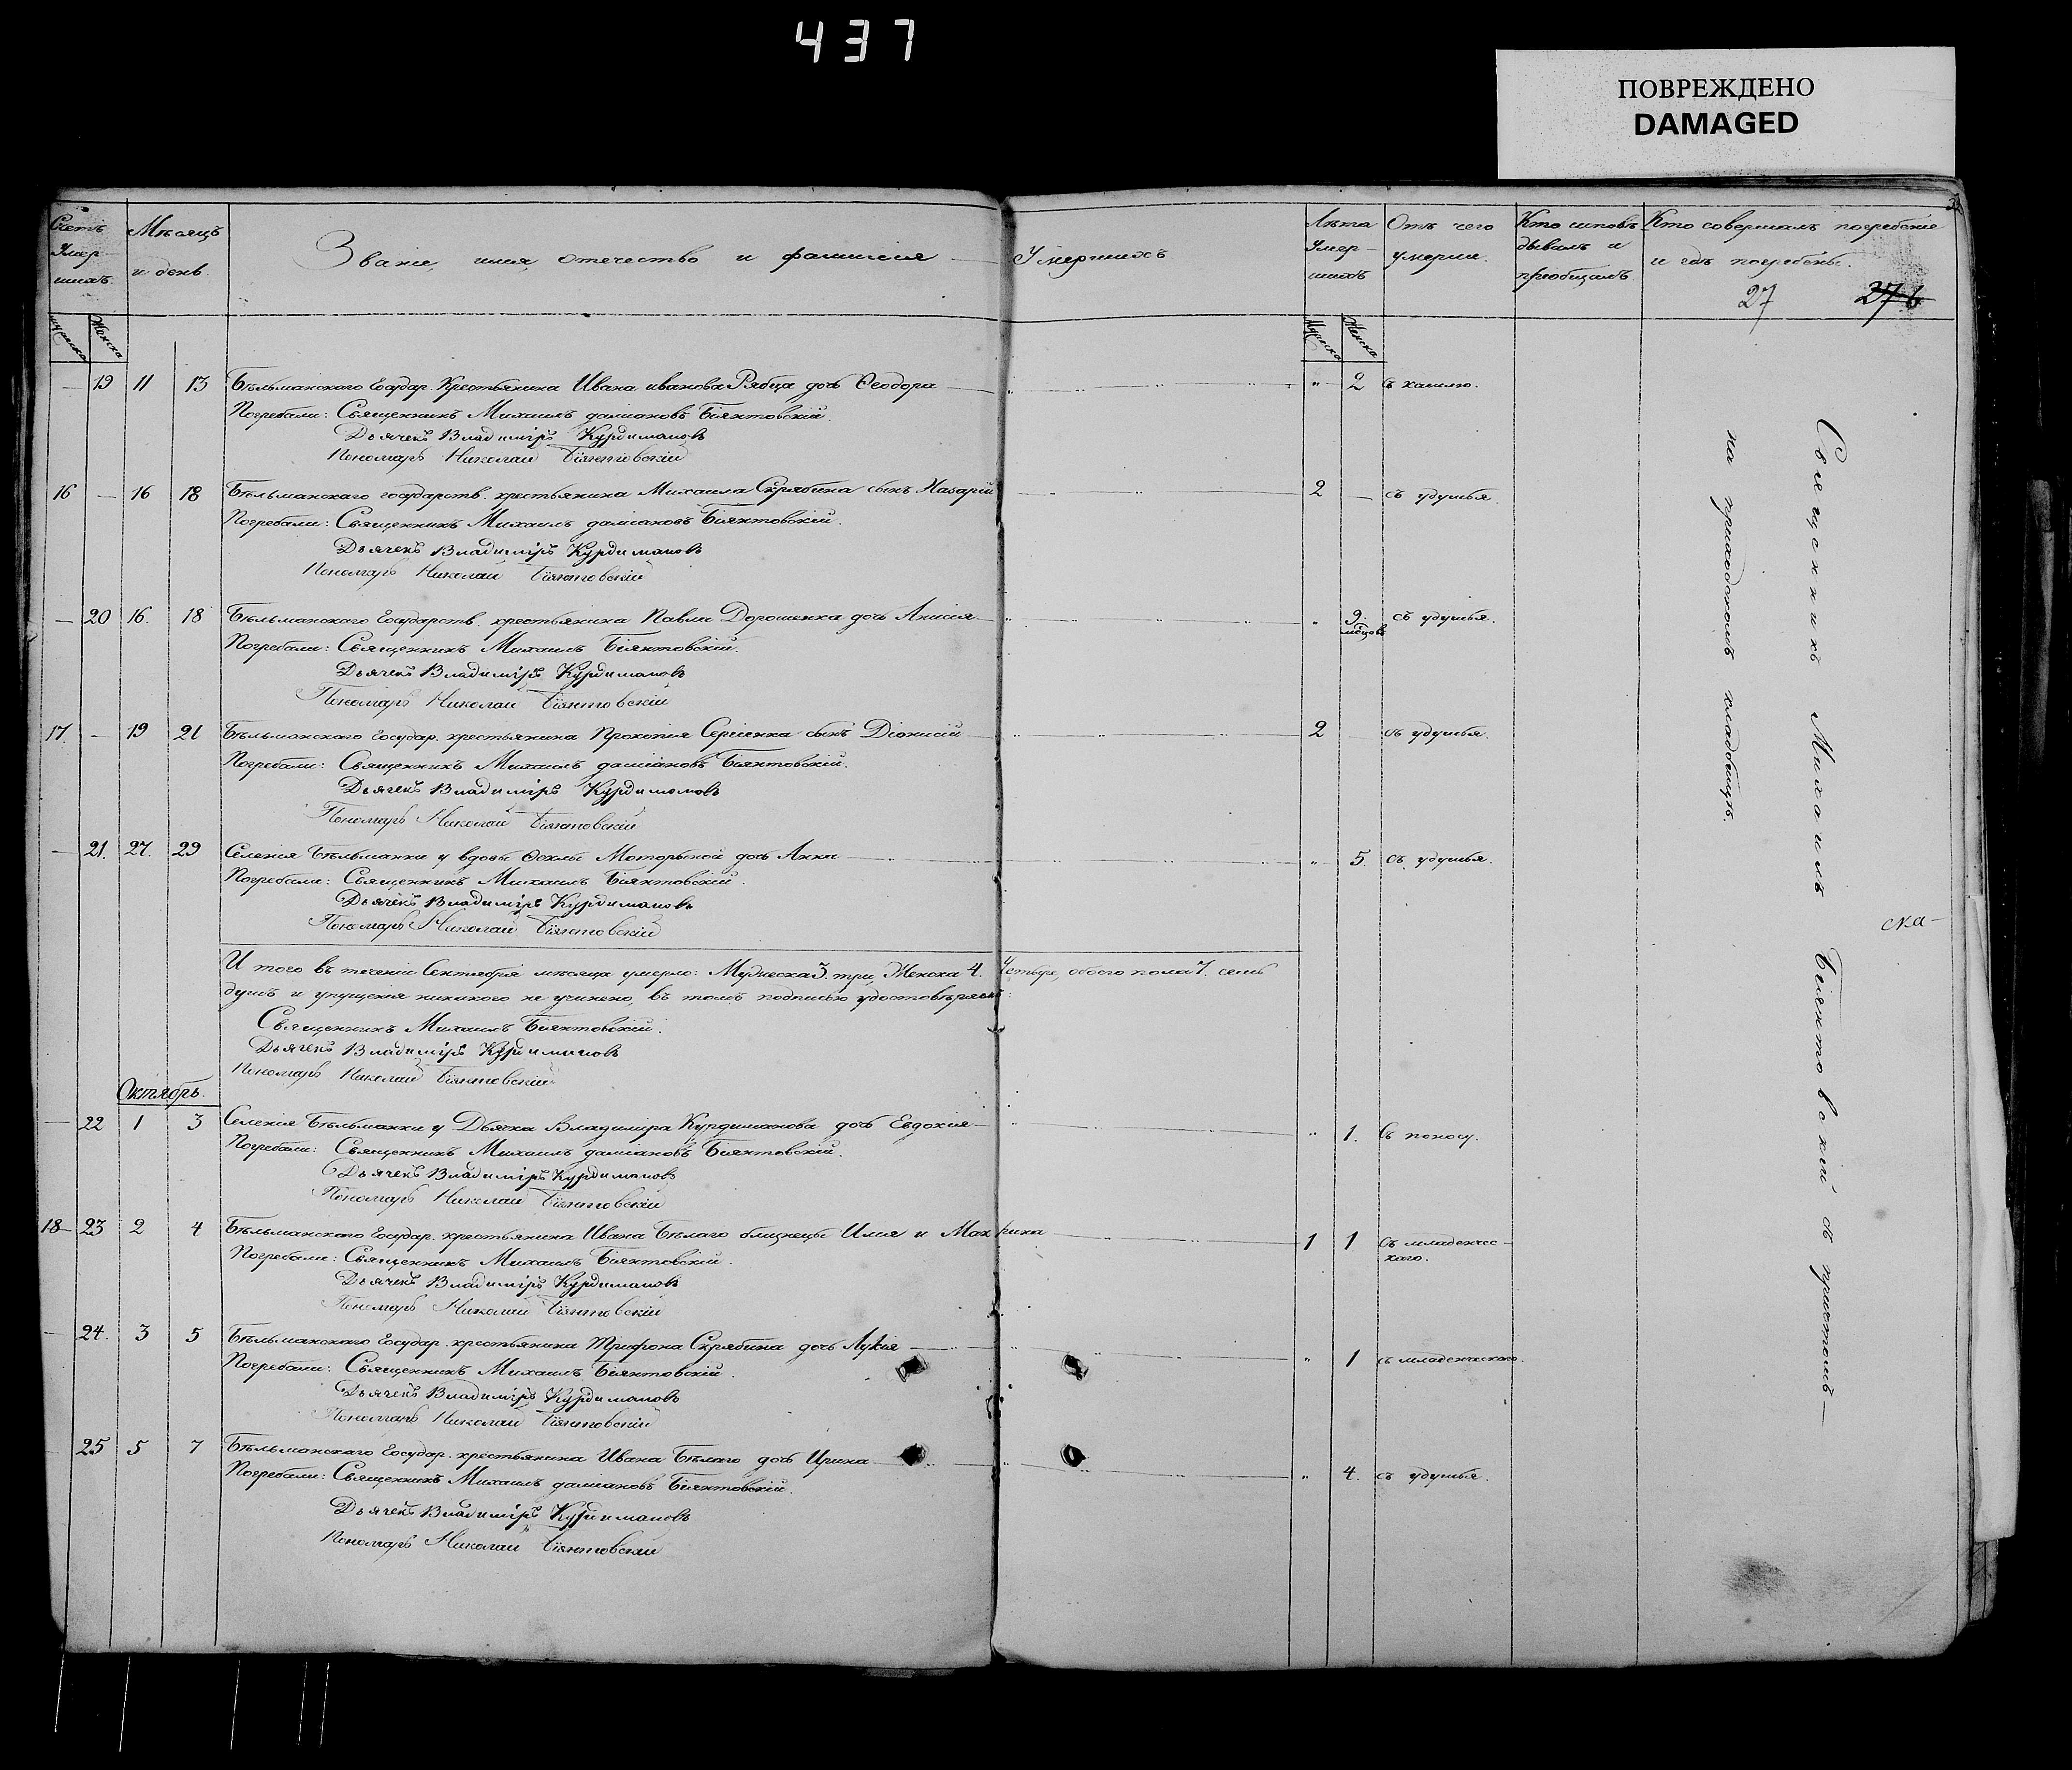 437
ПОВРЕЖДЕНО
DAMAGED
Счетъ Умер- шихъ.
Мѣсяцъ и день.
Званіе, имя, отечество и фамилія Умершихъ
Лѣта Умер- шихъ
Отъ чего умерли.
Кто исповѣ- дывалъ и пріобщалъ.
Кто совершалъ погребеніе и гдѣ погребены.
27 27 б
Мужска Женска
Мужска Женска
— 19 11 13 Бѣльманскаго Государ. Крестьянина Ивана иванова Рябца дочь Ѳеодора " 2 Съ кашлю.
Погребали: Священникъ Михаилъ даміановъ Біянтовскій.
Дьячекъ Владиміръ Курдимановъ
Пономарь Николай Біянтовскій
16 — 16 18 Бѣльманскаго государств. крестьянина Михаила Скрябина сынъ Назарій 2 — съ удушья.
Погребали: Священникъ Михаилъ даміановъ Біянтовскій.
Дьячекъ Владиміръ Курдимановъ
Пономарь Николай Біянтовскій
— 20 16. 18 Бѣльманскаго Государств. крестьянина Павла Дорошенка дочь Анисія " 9. мѣсцовъ съ удушья.
Погребали: Священникъ Михаилъ Біянтовскій.
Дьячекъ Владиміръ Курдимановъ
Пономарь Николай Біянтовскій
17. — 19 21 Бѣльманскаго Государ. крестьянина Прокопія Сергіенка сынъ Діонисій 2 съ удушья.
Погребали: Священникъ Михаилъ даміановъ Біянтовскій.
Дьячекъ Владиміръ Курдимановъ
Пономарь Николай Біянтовскій
— 21. 27. 29 Селенія Бѣльманки у вдовы Ѳеклы Моторыной дочь Анна " 5. съ удушья.
Погребали: Священникъ Михаилъ Біянтовскій.
Дьячекъ Владиміръ Курдимановъ
Пономарь Николай Біянтовскій
И того въ теченіи Сентября мѣсяца умерло: Мужеска 3. три, Женска 4. четыре, обоего пола 7. семь
душъ и упущенія никакого не учинено, въ томъ подписью удостовѣряемъ:
Священникъ Михаилъ Біянтовскій.
Дьячекъ Владиміръ Курдимановъ
Пономарь Николай Біянтовскій
Октябрь.
— 22 1 3 Селенія Бѣльманки у Дьячка Владиміра Курдиманова дочь Евдокія " 1. Съ поносу.
Погребали: Священникъ Михаилъ даміановъ Біянтовскій.
Дьячекъ Владиміръ Курдимановъ
Пономарь Николай Біянтовскій
18 — 23 2 4 Бѣльманскаго Государ. крестьянина Ивана Бѣлаго близнецы Илія и Макрина 1 1 Съ младенчес- каго.
Погребали: Священникъ Михаилъ Біянтовскій.
Дьячекъ Владиміръ Курдимановъ
Пономарь Николай Біянтовскій
— 24. 3 5 Бѣльманскаго Государ. крестьянина Трифона Скрябина дочь Лукія " 1 съ младенческаго.
Погребали: Священникъ Михаилъ Біянтовскій.
Дьячекъ Владиміръ Курдимановъ
Пономарь Николай Біянтовскій
25 5 7 Бѣльманскаго Государ. крестьянина Ивана Бѣлаго дочь Ирина " 4. съ удушья.
Погребали: Священникъ Михаилъ даміановъ Біянтовскій.
Дьячекъ Владиміръ Курдимановъ
Пономарь Николай Біянтовскій
Священникъ Михаилъ Біянтовскій съ причтомъ —
на приходскомъ кладбищѣ.